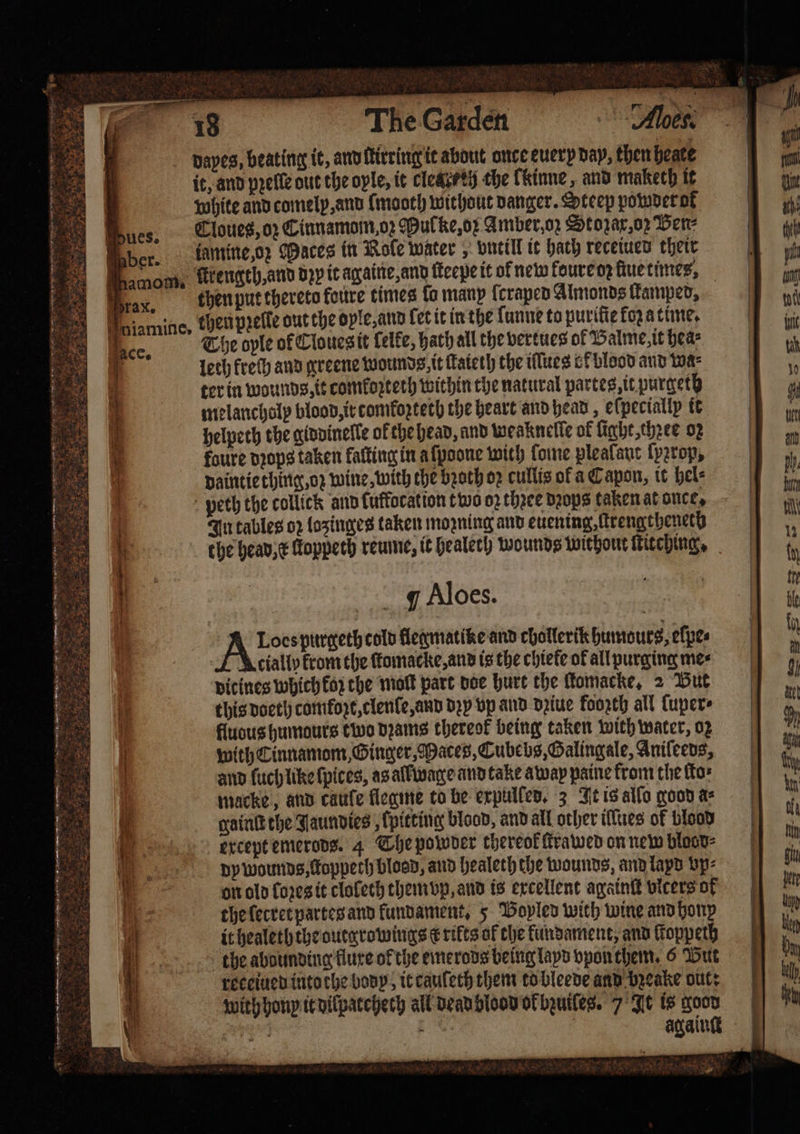 18 The Garden Aloes.
dayes, beating it, and stirring it about once euery day, then heate
it, and presse out the oyle, it cleareth the skinne, and maketh it
white and comely,and smooth without danger. Steep powder of
Cloues, or Cinnamom,or Muske,or Amber,or Storax,or Ben-
iamine,or Maces in Rose water , vntill it hath receiued their
strength,and dry it againe,and steepe it of new foure or fiue times,
then put thereto foure times so many scraped Almonds stamped,
then presse out the oyle,and set it in the sunne to purifie for a time.
The oyle of Cloues it selfe, hath all the vertues of Balme,it hea-
leth fresh and greene wounds,it staieth the issues of blood and wa-
ter in wounds,it comforteth within the natural partes,it purgeth
melancholy blood,it comforteth the heart and head , especially it
helpeth the giddinesse of the head, and weaknesse of sight,three or
foure drops taken fasting in a spoone with some pleasant syrrop,
daintie thing,or wine,with the broth or cullis of a Capon, it hel-
peth the collick and suffocation two or three drops taken at once,
In tables or lozinges taken morning and euening,strengtheneth
the head,& stoppeth reume, it healeth wounds without stitching.
oues.
ber.
namom.
orax.
niamine.
ace.
¶ Aloes.
ALoes purgeth cold flegmatike and chollerik humours, espe-
cially from the stomacke,and is the chiefe of all purging me-
dicines which for the most part doe hurt the stomacke. 2 But
this doeth comfort,clense,and dry vp and driue foorth all super-
fluous humours two drams thereof being taken with water, or
with Cinnamom,Ginger,Maces,Cubebs,Galingale,Aniseeds,
and such like spices, as asswage and take away paine from the sto-
macke, and cause flegme to be expulsed. 3 It is also good a-
gainst the Jaundies , spitting blood, and all other issues of blood
except emerods. 4 The powder thereof strawed on new blood-
dy wounds,stoppeth blood, and healeth the wounds, and layd vp-
on old sores it closeth them vp,and is excellent against vlcers of
the secret partes and fundament. 5 Boyled with wine and hony
it healeth the outgrowings & rifts of the fundament, and stoppeth
the abounding flure of the emerods being layd vpon them. 6 But
receiued into the body, it causeth them to bleede and breake out:
with hony it dispatcheth all dead blood of bruises. 7 It is good
against